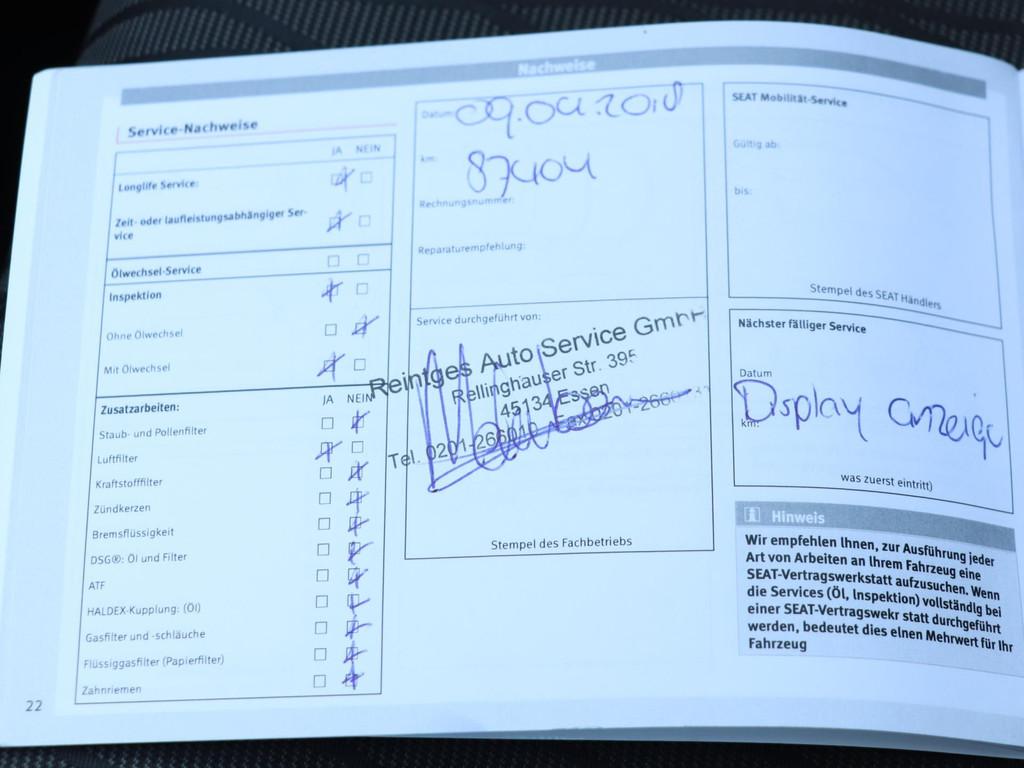 Nachweise
Service-Nachweise
JA NEIN
Longlife Service:
Zeit- oder laufleistungsabhängiger Ser-
vice
Ölwechsel-Service
Inspektion
Ohne Ölwechsel
Mit Ölwechsel
Zusatzarbeiten: JA NEIN
Staub- und Pollenfilter
Luftfilter
Kraftstofffilter
Zündkerzen
Bremsflüssigkeit
DSG®: Öl und Filter
ATF
HALDEX-Kupplung: (Öl)
Gasfilter und -schläuche
Flüssiggasfilter (Papierfilter)
Zahnriemen
22
Datum: 09.04.2018
km: 87404
Rechnungsnummer:
Reparaturempfehlung:
Service durchgeführt von:
Reintges Auto Service GmbH
Rellinghauser Str. 395
45134 Essen
Tel. 0201-266010 Fax 0201-266
Stempel des Fachbetriebs
SEAT Mobilität-Service
Gültig ab:
bis:
Stempel des SEAT Händlers
Nächster fälliger Service
Datum
Display anzeige
km:
was zuerst eintritt)
Hinweis
Wir empfehlen Ihnen, zur Ausführung jeder
Art von Arbeiten an Ihrem Fahrzeug eine
SEAT-Vertragswerkstatt aufzusuchen. Wenn
die Services (Öl, Inspektion) vollständig bei
einer SEAT-Vertragswekr statt durchgeführt
werden, bedeutet dies einen Mehrwert für Ihr
Fahrzeug